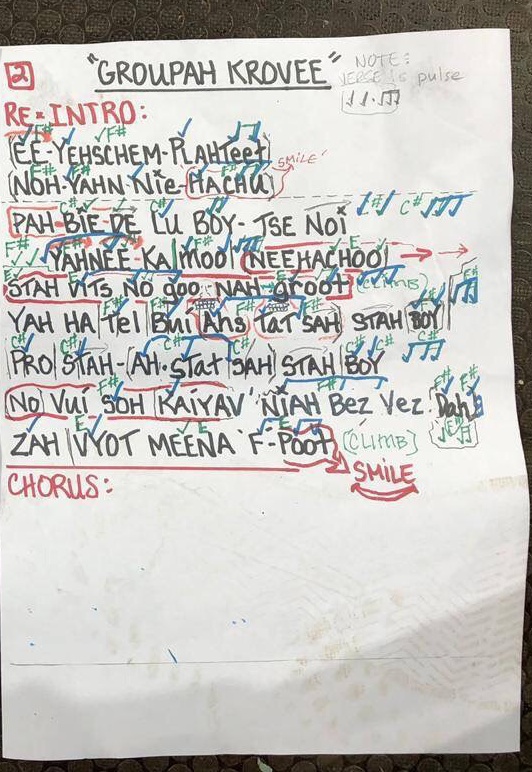 2 "GROUPAH KROVEE" NOTE:
VERSE is pulse
RE-INTRO:
EE-YEHSCHEM-PLAHTeet
SMILE
NOH-YAHN-Nie-HACHU
PAH-BIE-DE LU BOY-TSE Noi
YAHNEE-KA MOO NEEHACHOO
STAH VITS NO goo NAH groot (CLIMB)
YAH HA Tel Bui Ans Tat SAH STAH BOY
PRO STAH-AH-STat SAH STAH BOY
No Vui SOH KAIYAV' NIAH Bez Vez Dah
ZAH VYOT MEENA F-Poot (CLIMB)
SMILE
CHORUS: